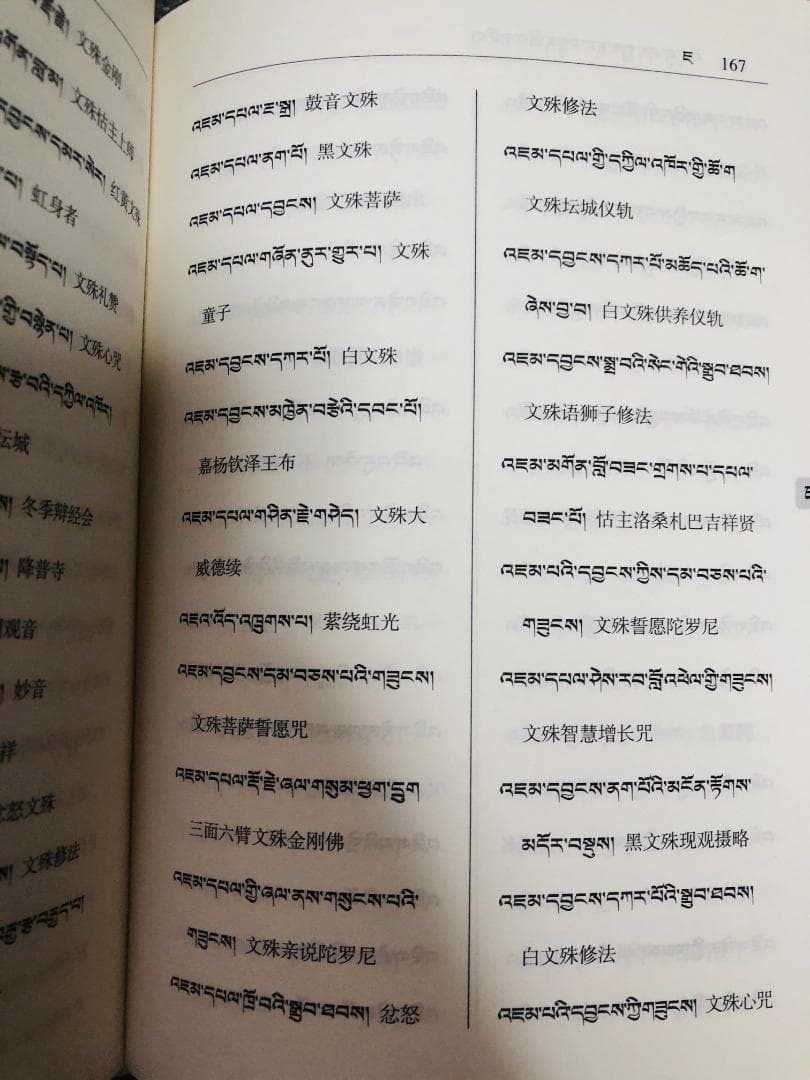 文殊金刚
文殊怙主上师
红黄文殊
虹身者
文殊礼赞
文殊心咒
坛城
冬季辩经会
降普寺
观音
妙音
祥
忿怒文殊
文殊修法
ཇ 167
འཇམ་དཔལ་ཇ་སྒྲ། 鼓音文殊
འཇམ་དཔལ་ནག་པོ། 黑文殊
འཇམ་དཔལ་དབྱངས། 文殊菩萨
འཇམ་དཔལ་གཞོན་ནུར་གྱུར་པ། 文殊
童子
འཇམ་དབྱངས་དཀར་པོ། 白文殊
འཇམ་དབྱངས་མཁྱེན་བརྩེའི་དབང་པོ།
嘉杨钦泽王布
འཇམ་དཔལ་གཤིན་རྗེ་གཤེད། 文殊大
威德续
འཇའ་འོད་འཁྲུགས་པ། 萦绕虹光
འཇམ་དབྱངས་དམ་བཅས་པའི་གཟུངས།
文殊菩萨誓愿咒
འཇམ་དཔལ་རྡོ་རྗེ་ཞལ་གསུམ་ཕྱག་དྲུག
三面六臂文殊金刚佛
འཇམ་དཔལ་གྱི་ཞལ་ནས་གསུངས་པའི་
གཟུངས། 文殊亲说陀罗尼
འཇམ་དཔལ་ཁྲོ་བའི་སྒྲུབ་ཐབས། 忿怒
文殊修法
འཇམ་དཔལ་གྱི་དཀྱིལ་འཁོར་གྱི་ཆོ་ག
文殊坛城仪轨
འཇམ་དབྱངས་དཀར་པོ་མཆོད་པའི་ཆོ་ག་
ཞེས་བྱ་བ། 白文殊供养仪轨
འཇམ་དབྱངས་སྨྲ་བའི་སེང་གེའི་སྒྲུབ་ཐབས།
文殊语狮子修法
འཇམ་མགོན་བློ་བཟང་གྲགས་པ་དཔལ་
བཟང་པོ། 怙主洛桑札巴吉祥贤
འཇམ་པའི་དབྱངས་ཀྱིས་དམ་བཅས་པའི་
གཟུངས། 文殊誓愿陀罗尼
འཇམ་དཔལ་ཤེས་རབ་བློ་འཕེལ་གྱི་གཟུངས།
文殊智慧增长咒
འཇམ་དབྱངས་ནག་པོའི་མངོན་རྟོགས་
མདོར་བསྡུས། 黑文殊现观摄略
འཇམ་དབྱངས་དཀར་པོའི་སྒྲུབ་ཐབས།
白文殊修法
འཇམ་པའི་དབྱངས་ཀྱི་གཟུངས། 文殊心咒